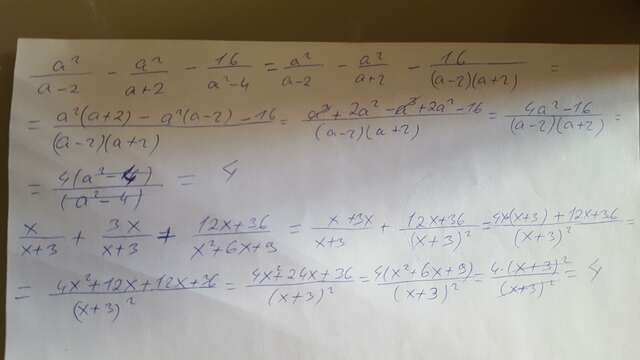 a²/(a-2) - a²/(a+2) - 16/(a²-4) = a²/(a-2) - a²/(a+2) - 16/((a-2)(a+2)) =
= (a²(a+2) - a²(a-2) - 16)/((a-2)(a+2)) = (a³ + 2a² - a³ + 2a² - 16)/((a-2)(a+2)) = (4a² - 16)/((a-2)(a+2)) =
= 4(a² - 4)/(a² - 4) = 4
x/(x+3) + 3x/(x+3) + (12x+36)/(x²+6x+9) = (x+3x)/(x+3) + (12x+36)/(x+3)² = (4x(x+3) + 12x+36)/(x+3)² =
= (4x²+12x+12x+36)/(x+3)² = (4x²+24x+36)/(x+3)² = 4(x²+6x+9)/(x+3)² = 4·(x+3)²/(x+3)² = 4